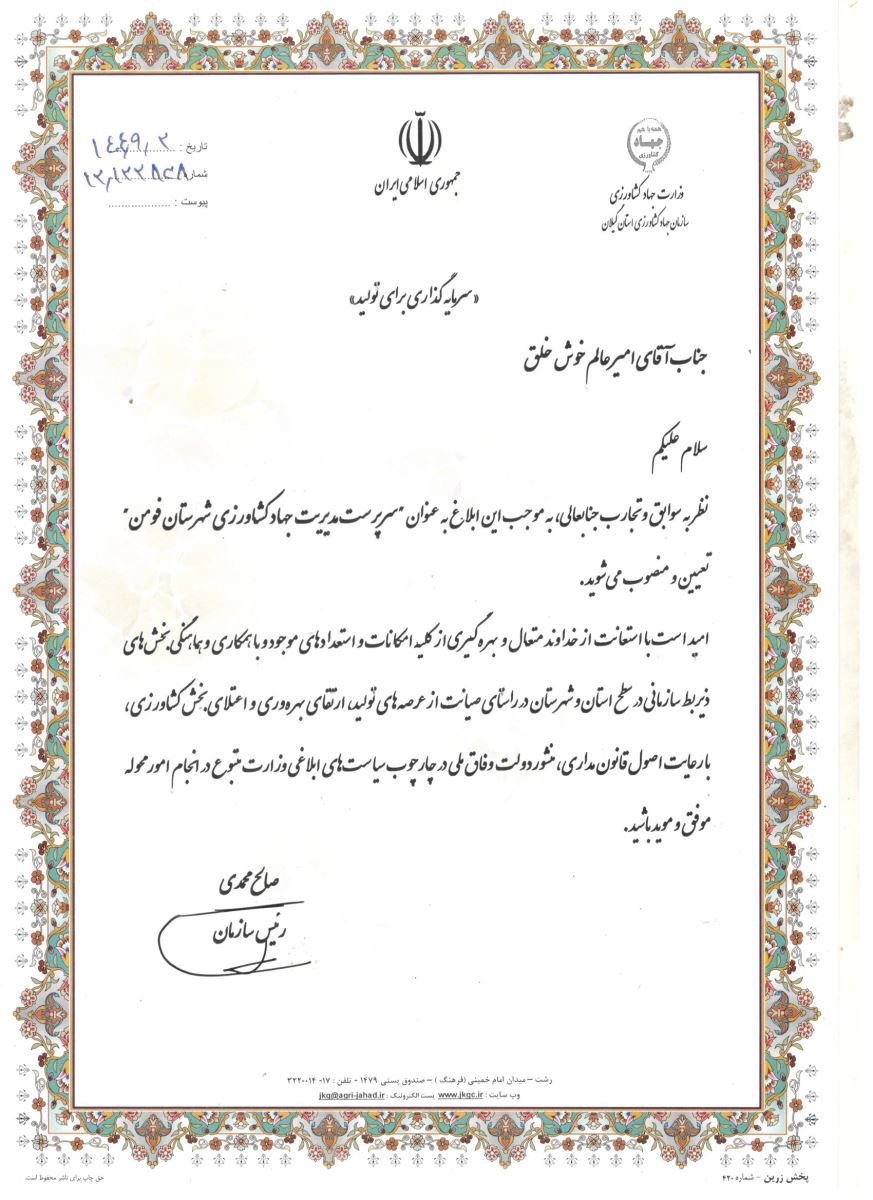 همه با هم
جهاد
کشاورزی
وزارت جهاد کشاورزی
سازمان جهاد کشاورزی استان گیلان
جمهوری اسلامی ایران
تاریخ :
شماره
پیوست :
«سرمایه گذاری برای تولید»
جناب آقای امیر عالم خوش خلق
سلام علیکم
نظر به سوابق و تجارب جنابعالی، به موجب این ابلاغ به عنوان "سرپرست مدیریت جهاد کشاورزی شهرستان فومن"
تعیین و منصوب می شوید.
امید است با استعانت از خداوند متعال و بهره گیری از کلیه امکانات و استعدادهای موجود و با همکاری و هماهنگی بخش های
ذیربط سازمانی در سطح استان و شهرستان در راستای صیانت از عرصه های تولید، ارتقای بهره وری و اعتلای بخش کشاورزی،
با رعایت اصول قانون مداری، منشور دولت وفاق ملی در چارچوب سیاست های ابلاغی وزارت متبوع در انجام امور محوله
موفق و موید باشید.
صالح محمدی
رئیس سازمان
رشت – میدان امام خمینی (فرهنگ ) – صندوق پستی ۱۴۷۹ - تلفن : ۱۷- ۳۳۲۰۰۱۴
وب سایت : www.jkgc.ir پست الکترونیک : jkg@agri-jahad.ir
پخش زرین - شماره ۴۲۰
حق چاپ برای ناشر محفوظ است.